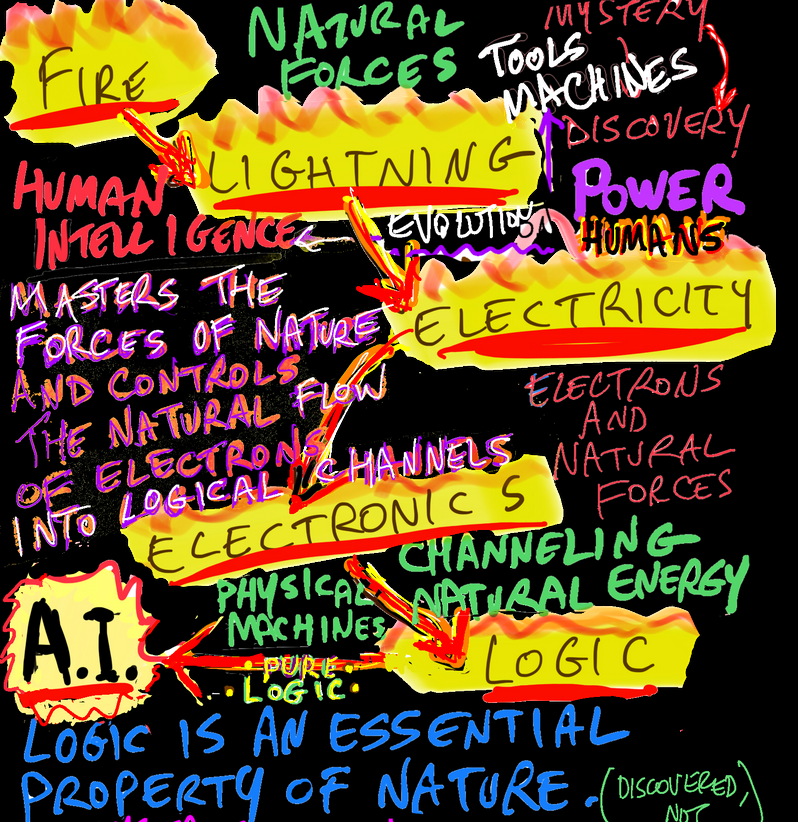 FIRE
NATURAL
FORCES
TOOLS
MACHINES
MYSTERY
DISCOVERY
LIGHTNING
HUMAN
INTELLIGENCE
EVOLUTION
POWER
HUMANS
ELECTRICITY
MASTERS THE
FORCES OF NATURE
AND CONTROLS
THE NATURAL FLOW
OF ELECTRONS
INTO LOGICAL CHANNELS
ELECTRONS
AND
NATURAL
FORCES
ELECTRONICS
CHANNELING
NATURAL ENERGY
PHYSICAL
MACHINES
A.I.
• PURE •
• LOGIC •
LOGIC
LOGIC IS AN ESSENTIAL
PROPERTY OF NATURE.
(DISCOVERED,
NOT